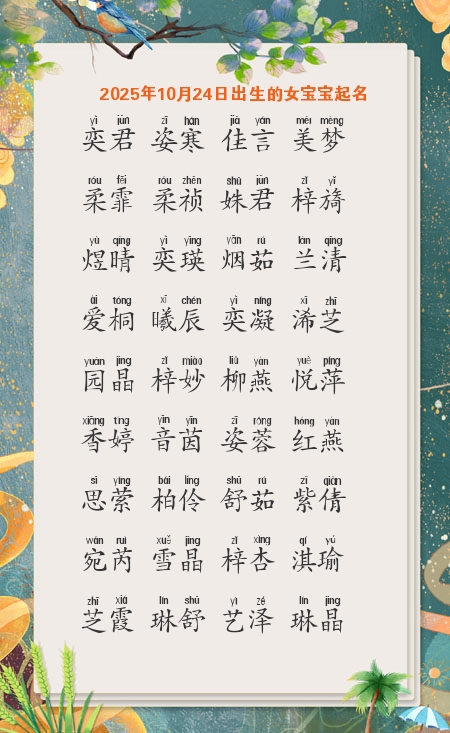 2025年10月24日出生的女宝宝起名
yì jūn zī hán jiā yán měi mèng
奕君 姿寒 佳言 美梦
róu fēi róu zhēn shū jūn zǐ yǐ
柔霏 柔祯 姝君 梓旖
yù qíng yì yīng yān rú lán qīng
煜晴 奕瑛 烟茹 兰清
ài tóng xī chén yì níng xī zhī
爱桐 曦辰 奕凝 浠芝
yuán jīng zǐ miào liǔ yàn yuè píng
园晶 梓妙 柳燕 悦萍
xiāng tíng yīn yīn zī róng hóng yàn
香婷 音茵 姿蓉 红燕
sī yíng bǎi líng shū rú zǐ qiàn
思萦 柏伶 舒茹 紫倩
wǎn ruì xuě jīng zǐ xìng qí yú
宛芮 雪晶 梓杏 淇瑜
zhī xiá lín shū yì zé lín jīng
芝霞 琳舒 艺泽 琳晶